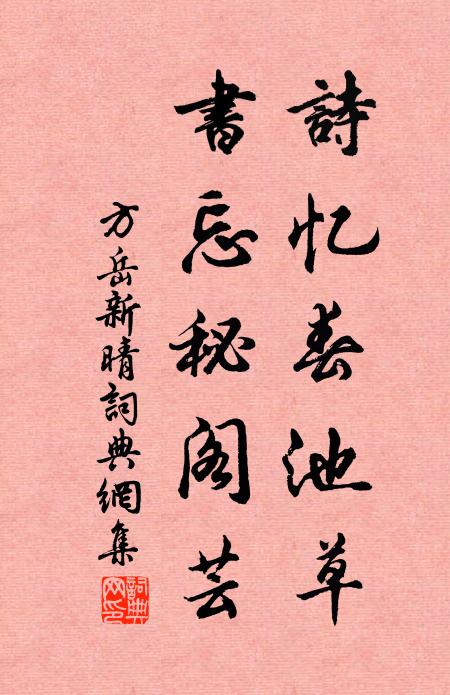 詩忆春池草
書忘秘阁芸
方岳新晴詞典網集
詞典网印